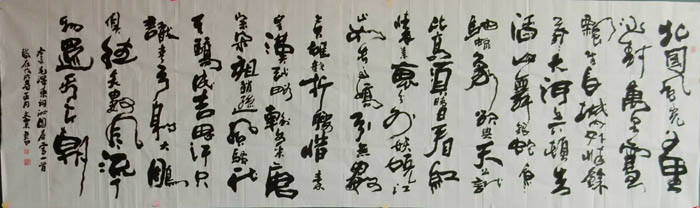 北国风光千里
冰封万里雪
飘望长城内外惟余
莽莽大河上下顿失
滔滔山舞银蛇原
驰蜡象欲与天公试
比高须晴日看红
装素裹分外妖娆江
山如此多娇引无数
英雄竞折腰惜秦
皇汉武略输文采唐
宗宋祖稍逊风骚一代
天骄成吉思汗只
识弯弓射大雕
俱往矣数风流人
物还看今朝
毛泽东词沁园春雪一首